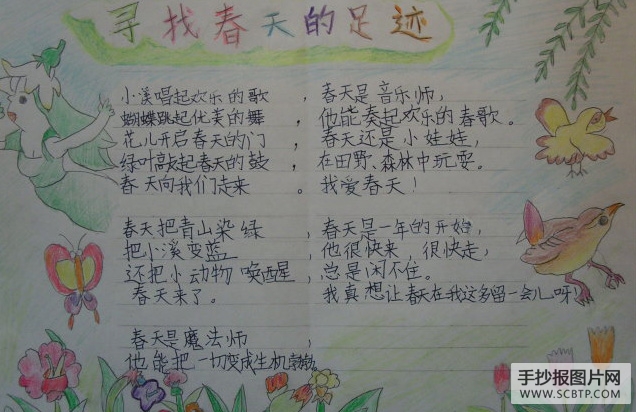 寻找春天的足迹
小溪唱起欢乐的歌，
蝴蝶跳起优美的舞，
花儿开启春天的门，
绿叶敲起春天的鼓，
春天向我们走来。
春天把青山染绿，
把小溪变蓝，
还把小动物唤醒，
春天来了。
春天是魔法师，
他能把一切变成生机勃勃。
春天是音乐师，
他能奏起欢乐的春歌。
春天还是小娃娃，
在田野、森林中玩耍。
我爱春天！
春天是一年的开始，
他很快来，很快走，
总是闲不住。
我真想让春天在我这多留一会儿呀
手抄报图片网
WWW.SCBTP.COM